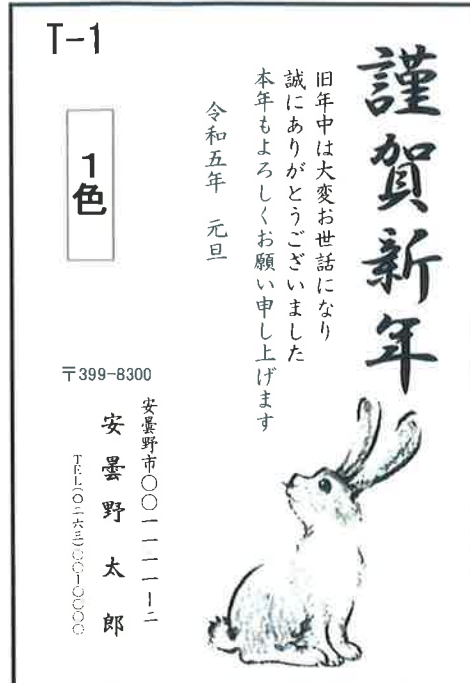 T-1
謹賀新年
旧年中は大変お世話になり
誠にありがとうございました
本年もよろしくお願い申し上げます
令和五年 元旦
1色
〒399-8300
安曇野市〇〇一一一一ー二
安曇野太郎
TEL(〇二六三)〇〇ー〇〇〇〇